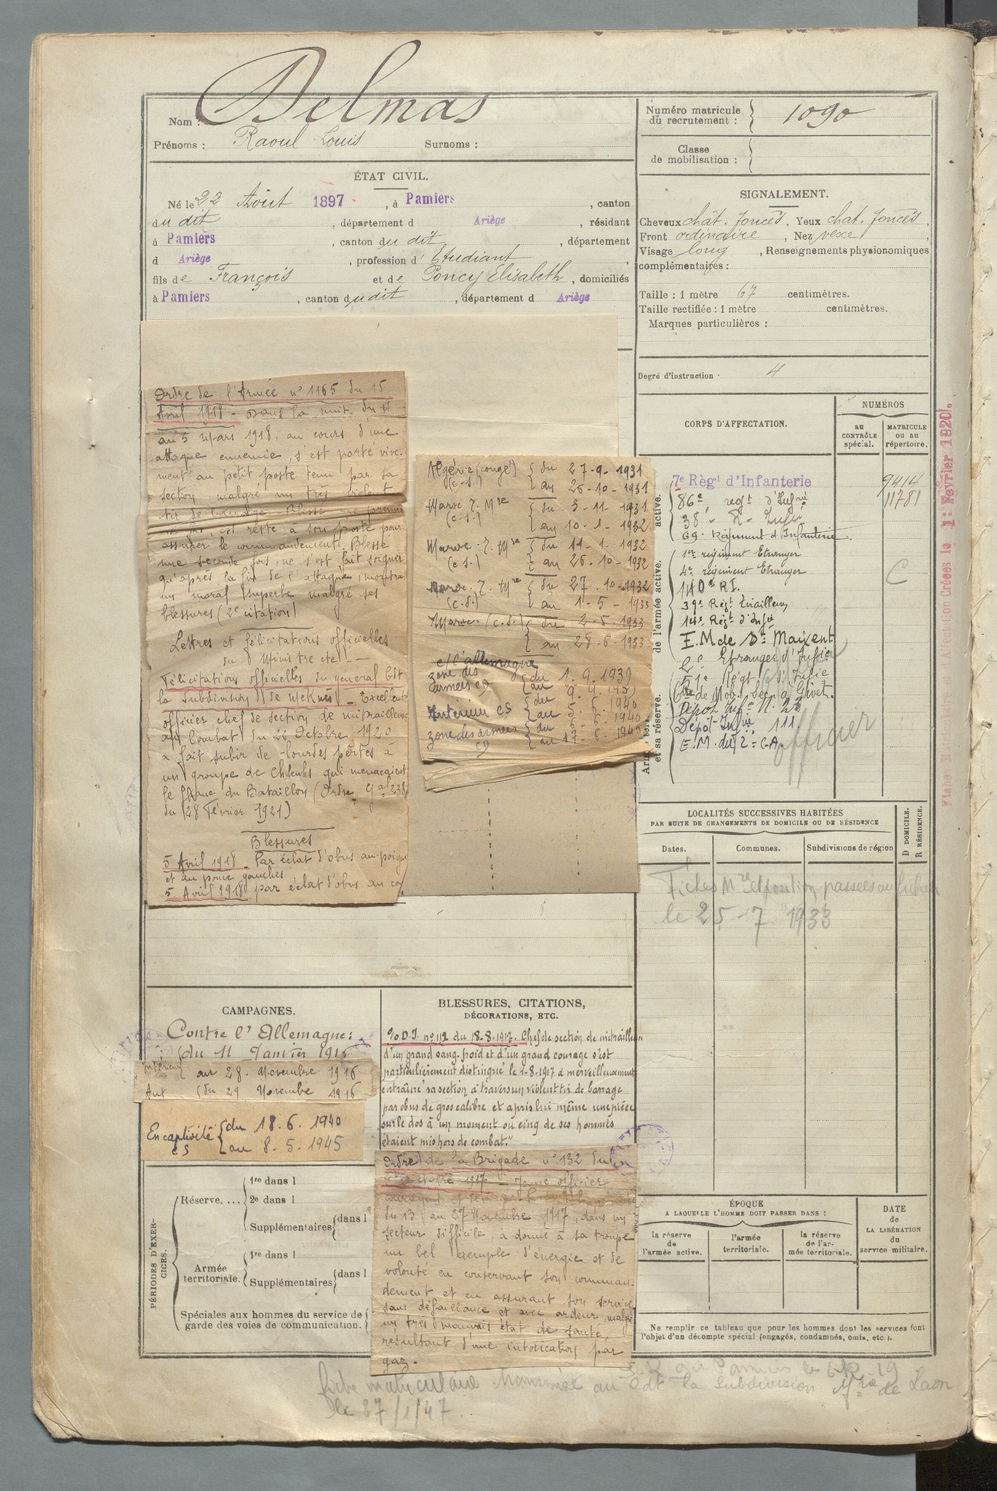 Nom : Delmas
Prénoms : Raoul Louis Surnoms :
ÉTAT CIVIL.
Né le 22 Août 1897, à Pamiers, canton
du dit, département d Ariège, résidant
à Pamiers, canton du dit, département
d Ariège, profession d'Etudiant
fils de François et de Poncy Elisabeth, domiciliés
à Pamiers, canton du dit, département d Ariège
Numéro matricule
du recrutement : 1090
Classe
de mobilisation :
SIGNALEMENT.
Cheveux chât. foncés, Yeux chat. foncés,
Front ordinaire, Nez vexe,
Visage long, Renseignements physionomiques
complémentaires :
Taille : 1 mètre 67 centimètres.
Taille rectifiée : 1 mètre centimètres.
Marques particulières :
Degré d'instruction : 4
Ordre de l'Armée n° 1165 du 15
Avril 1918 - Dans la nuit du 4
au 5 Mars 1918, au cours d'une
attaque ennemie, s'est porté vive-
ment au petit poste tenu par sa
section malgré un très violent
tir de barrage. Blessé
est resté à son poste pour
assurer le commandement. Blessé
une seconde fois, ne s'est fait
qu'après la fin de l'attaque,
un moral superbe malgré ses
blessures (2e citation)
Lettres et félicitations officielles
du Ministre etc! -
Félicitations officielles du général Cdt
la Subdivision de Meknès - Excellent
officier chef de section de mitrailleuses
au Combat du 24 Octobre 1920
a fait subir de lourdes pertes à
un groupe de Chleuhs qui menaçaient
le flanc du Bataillon (Ordre Gal
du 28 Février 1921)
Blessures
5 Avril 1918 - Par éclat d'obus au poignet
et au pouce gauches
5 Avril 1918 par éclat d'obus au
Algérie (congé) du 27-9-1931
(c.s.) au 26-10-1931
Maroc. T. Mre du 3-11-1931
(c.s.) au 10-1-1932
Maroc. T. Mre du 11-1-1932
(c.s.) au 26-10-1932
Maroc. T. Mre du 27-10-1932
(c.s.) au 1-5-1933
Maroc. (c.s.) du 2-5-1933
au 28-6-1933
c/ l'allemagne
zone des du 1.9.1939
armées CS au
Intérieur CS du
au
zone des armées du
CS au 17.6.1940
CORPS D'AFFECTATION.
NUMÉROS
AU
CONTRÔLE
spécial.
MATRICULE
ou au
répertoire.
Armée active.
de l'armée active.
et sa réserve.
7e Règt d'Infanterie 9414
86e regt d'Infrie 11781
38e R. Infie
69e Régiment d'Infanterie
1er régiment Etranger
4e régiment Etranger C
140e R.I.
39e Régt Tirailleurs
14e Régt d'Infie
E.M de St Maixent
2e Etranger d'Infie
51e Régt d'Infie
Dépôt Inf. N. 23
Dépôt Infie 111
E.M. du 2e CA
officier
1er Février 1920.
LOCALITÉS SUCCESSIVES HABITÉES
PAR SUITE DE CHANGEMENTS DE DOMICILE OU DE RÉSIDENCE
Dates. Communes. Subdivisions de région
D DOMICILE.
R RÉSIDENCE.
Fiches Mle et position passées au
le 25-7 1933
CAMPAGNES.
Contre l'Allemagne:
du 11 Janvier 1916
Intérieur au 28 Novembre 1916
Aux du 29 Novembre 1916
En captivité du 18.6.1940
CS au 8.5.1945
BLESSURES, CITATIONS,
DÉCORATIONS, ETC.
O.D.I. n° 112 du 18.8.1917. Chef de section de mitrailleuses
d'un grand sang froid et d'un grand courage s'est
particulièrement distingué le 2.8.1917 a merveilleusement
entrainé sa section, à travers un violent tir de barrage
par obus de gros calibre et a pris lui même une pièce
sur le dos à un moment ou cinq de ses hommes
étaient mis hors de combat."
Ordre de la Brigade n° 132 du
1917 - Jeune officier
du 13 au 27 Novembre 1917, dans un
secteur difficile, a donné à sa troupe
un bel exemple d'énergie et de
volonté en conservant son comman-
dement et en assurant son service
sans défaillance et avec ardeur, malgré
un très mauvais état de santé,
résultant d'une intoxication par
gaz.
PÉRIODES D'EXER-
CICES.
Réserve. ....
1re dans l
2e dans l
Supplémentaires dans l
Armée
territoriale.
1re dans l
Supplémentaires dans l
Spéciales aux hommes du service de
garde des voies de communication.
ÉPOQUE
A LAQUELLE L'HOMME DOIT PASSER DANS :
la réserve
de
l'armée active.
l'armée
territoriale.
la réserve
de l'ar-
mée territoriale.
DATE
de
LA LIBÉRATION
du
service militaire.
Ne remplir ce tableau que pour les hommes dont les services font
l'objet d'un décompte spécial (engagés, condamnés, omis, etc.).
fiche matriculaire transmise au Cdt la Subdivision Mre de Laon
le 27/1/47.